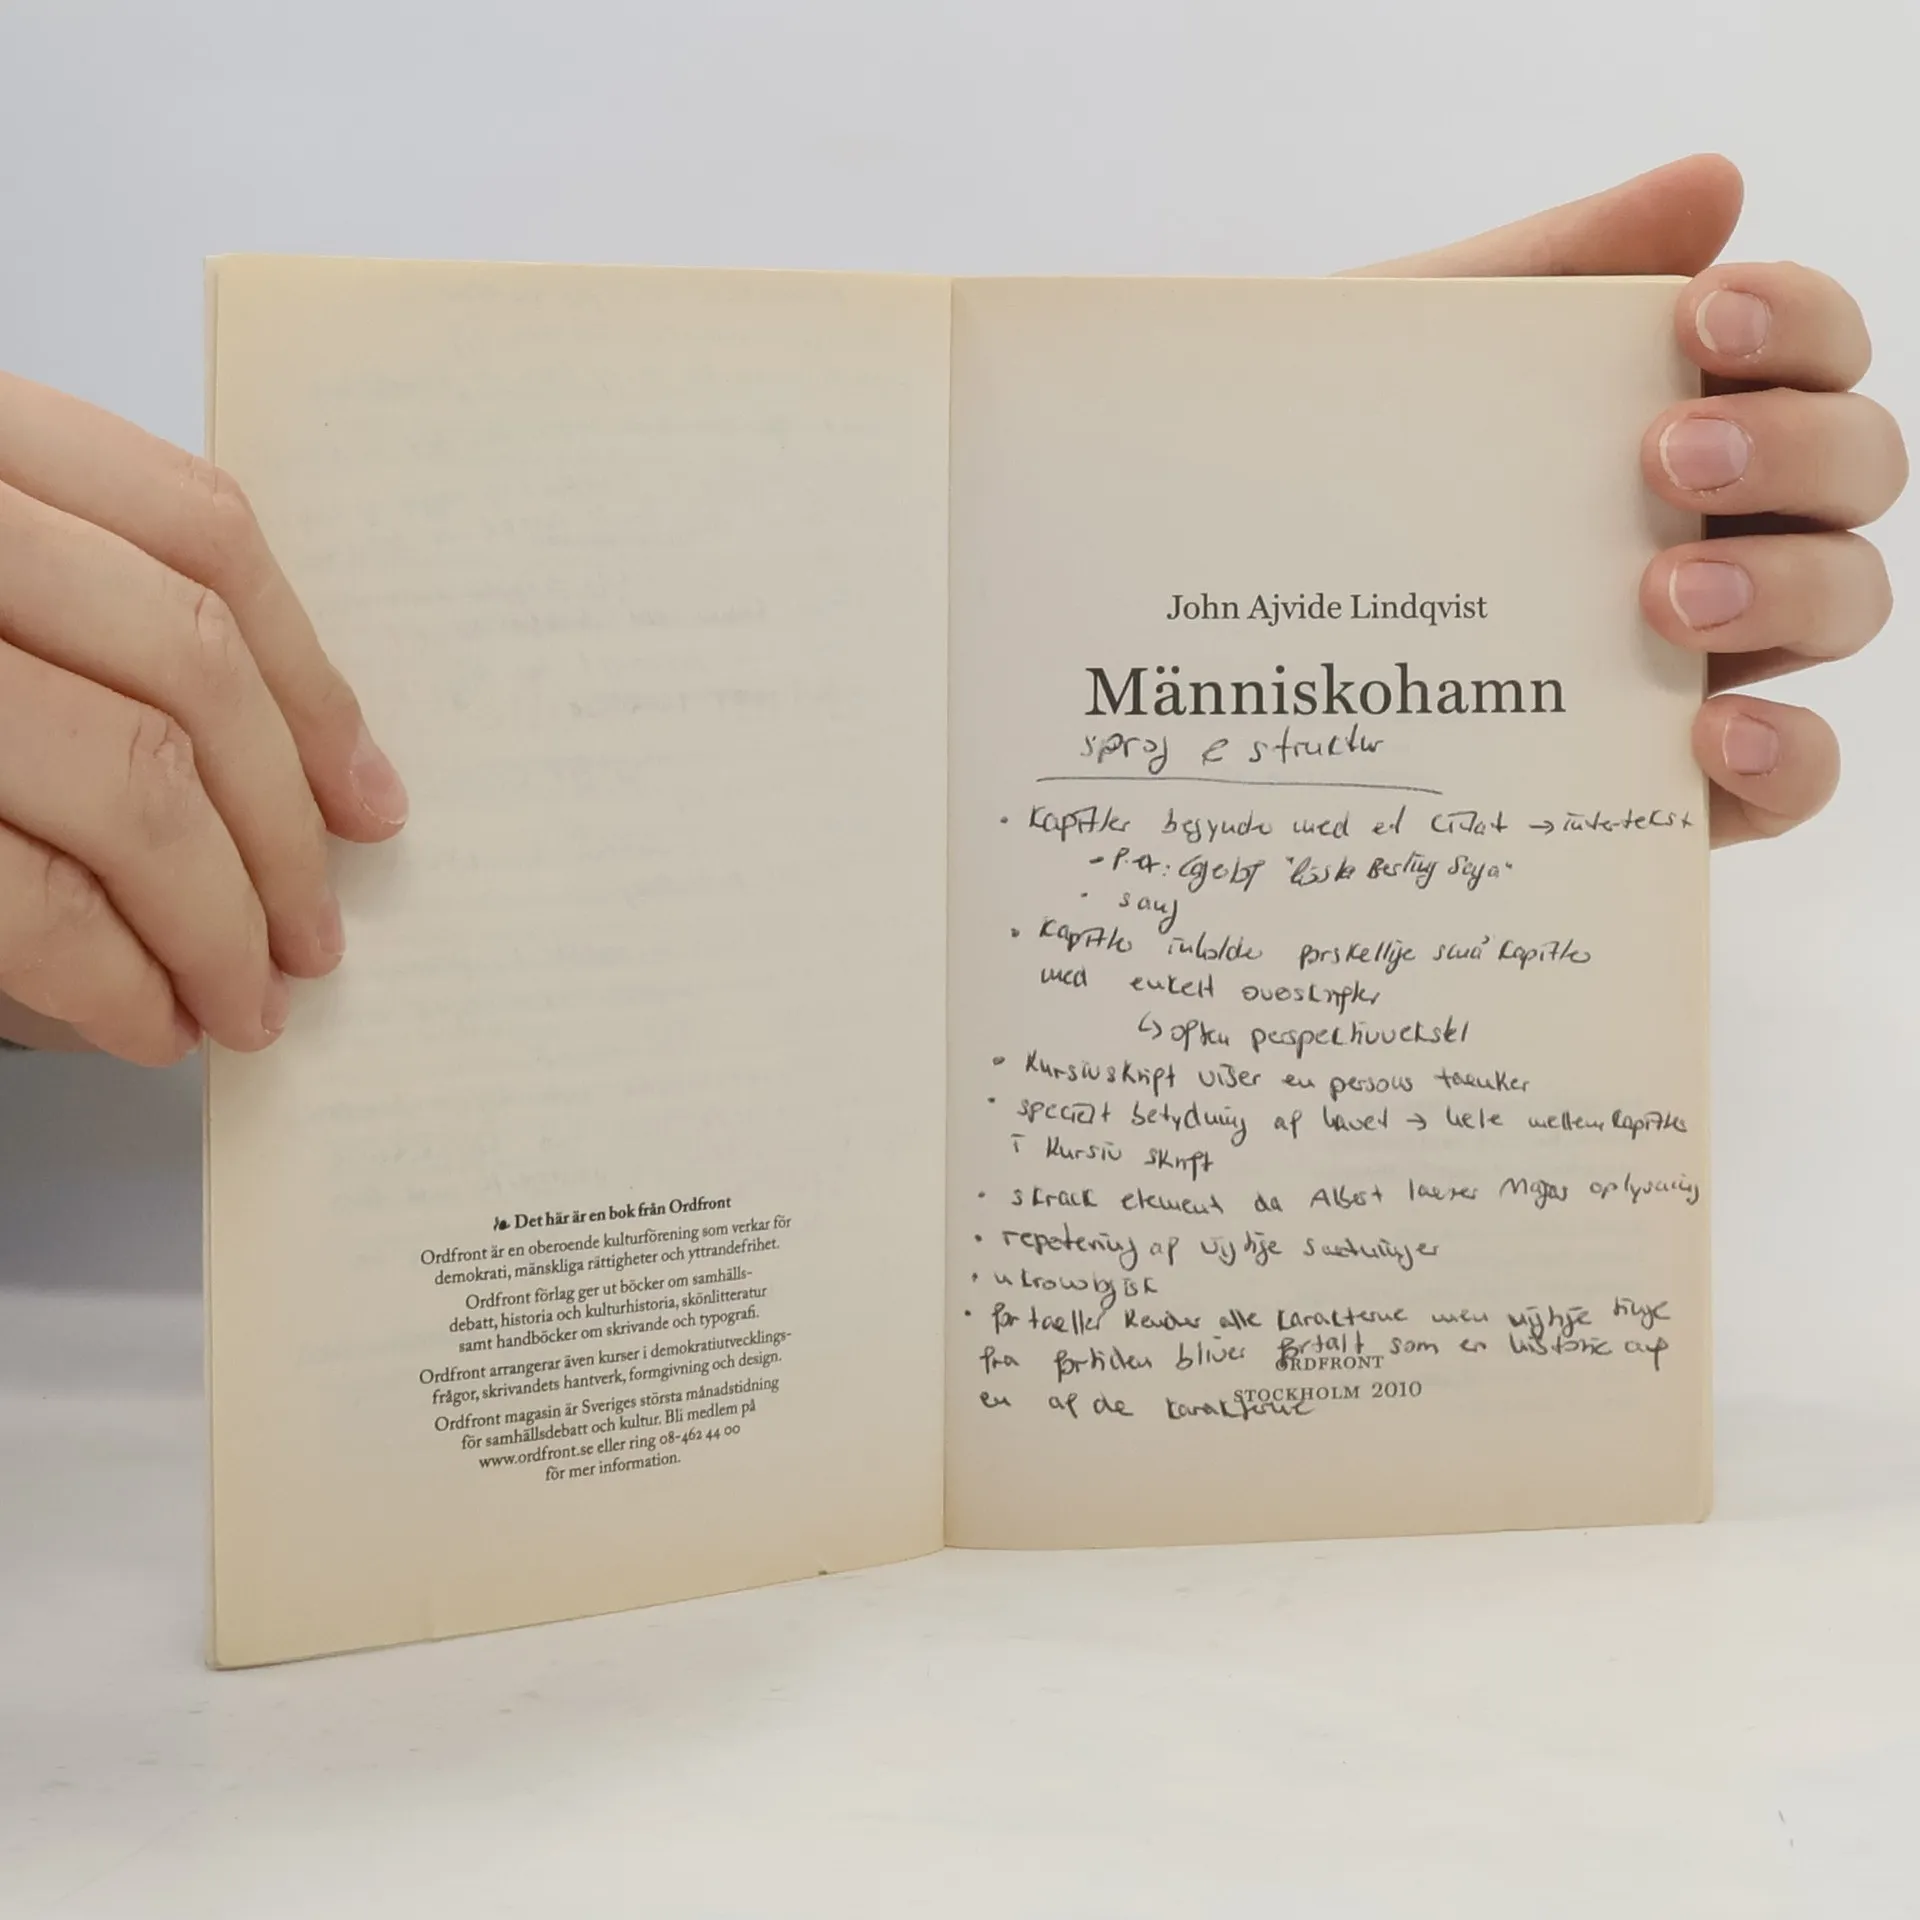 Det här är en bok från Ordfront
Ordfront är en oberoende kulturförening som verkar för
demokrati, mänskliga rättigheter och yttrandefrihet.
Ordfront förlag ger ut böcker om samhälls-
debatt, historia och kulturhistoria, skönlitteratur
samt handböcker om skrivande och typografi.
Ordfront arrangerar även kurser i demokratiutvecklings-
frågor, skrivandets hantverk, formgivning och design.
Ordfront magasin är Sveriges största månadstidning
för samhällsdebatt och kultur. Bli medlem på
www.ordfront.se eller ring 08-462 44 00
för mer information.
John Ajvide Lindqvist
Människohamn
sprog & struktur
• Kapitler begynder med et citat → intertekst
"Gösta Berling Saga"
• sang
• Kapitler indholder forskellige små kapitler
med enkelt overskrifter
↳ often perspektivveksel
• Kursivskript viser en persons taenker
• specielt betydning af havet → hele mellem kapitler
i kursiv skript
• skrack element da Albert laeser Majas oplysning
• repetering af vigtige saetninger
• ukronologisk
• fortaeller kender alle karakterne men vigtige tinge
fra fortiden bliver fortalt som en historie af
en af de karakterne
ORDFRONT
STOCKHOLM 2010